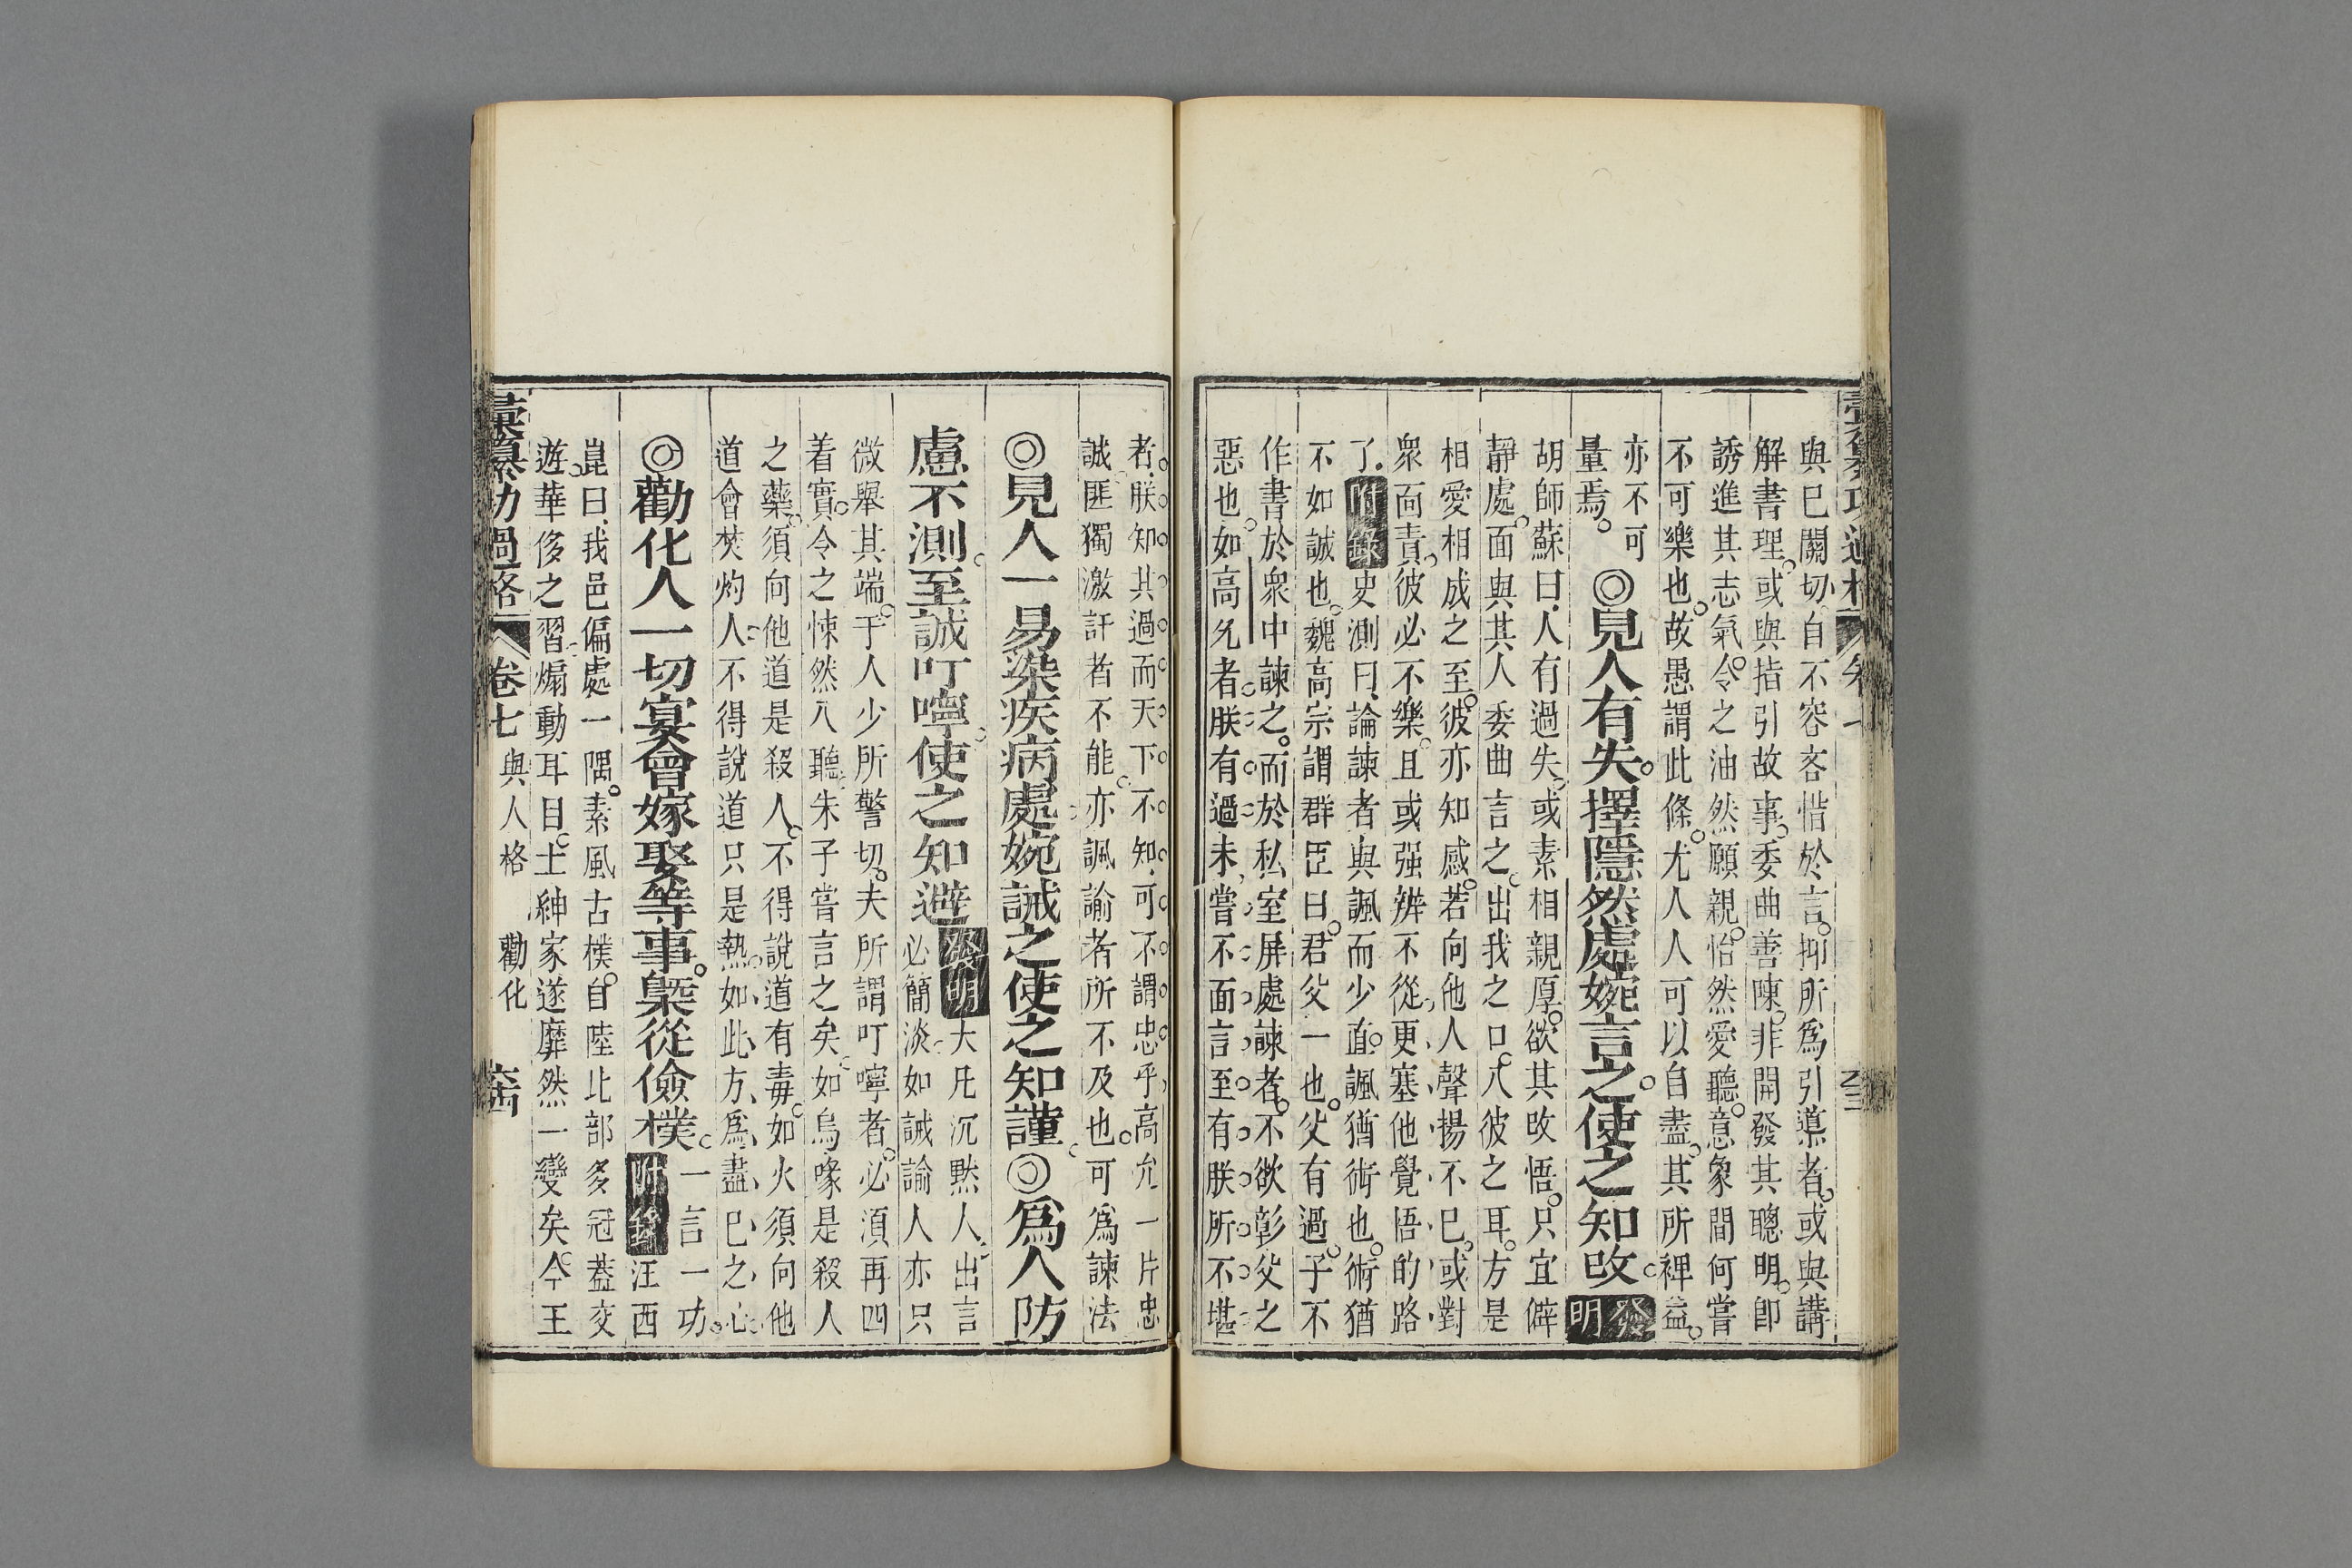 與已關切自不容吝惜於言。抑所爲引導者。或與講
解書理。或與指引故事。委曲善陳。非開發其聰明。卽
誘進其志氣。令之油然願親。怡然愛聽。意象間何嘗
不可樂也。故愚謂此條。尤人人可以自盡。其所裨益。
亦不可
量焉。
◎見人有失。擇隱然處婉言之。使之知改。發明
胡師蘇曰。人有過失。或素相親厚。欲其改悟。只宜僻
靜處。面與其人委曲言之。出我之口。入彼之耳。方是
相愛相成之至。彼亦知感。若向他人聲揚不已。或對
衆面責。彼必不樂。且或强辨不從。更塞他覺悟的路
了。附錄史測曰。論諫者與諷而少直。諷猶術也。術猶
不如誠也。魏高宗謂群臣曰。君父一也。父有過。子不
作書於衆中諫之。而於私室屏處諫者。不欲彰父之
惡也。如高允者。朕有過。未嘗不面言。至有朕所不堪
者。朕知其過而天下不知。可不謂忠乎。高允一片忠
誠。匪獨激訐者不能。亦諷諭者所不及也。可爲諫法
◎見人一易染疾病處。婉誡之。使之知謹。◎爲人防
慮不測。至誠叮嚀。使之知避。發明大凡沉默人。出言
必簡淡。如誡諭人。亦只
微舉其端。于人少所警切。夫所謂叮嚀者。必湏再四
着實。令之悚然入聽。朱子嘗言之矣。如烏喙是殺人
之藥。須向他道是殺人。不得說道有毒。如火須向他
道會焚灼人。不得說道只是熱。如此方爲盡已之心。
一言一功。
◎勸化人一切宴會嫁娶等事。槩從儉樸。附證汪西
崑曰。我邑偏處一隅。素風古樸。自陸北部多冠葢交
遊。華侈之習。煽動耳目。士紳家遂靡然一變矣。今王
彙纂功過格 卷七 與人格 勸化 六四